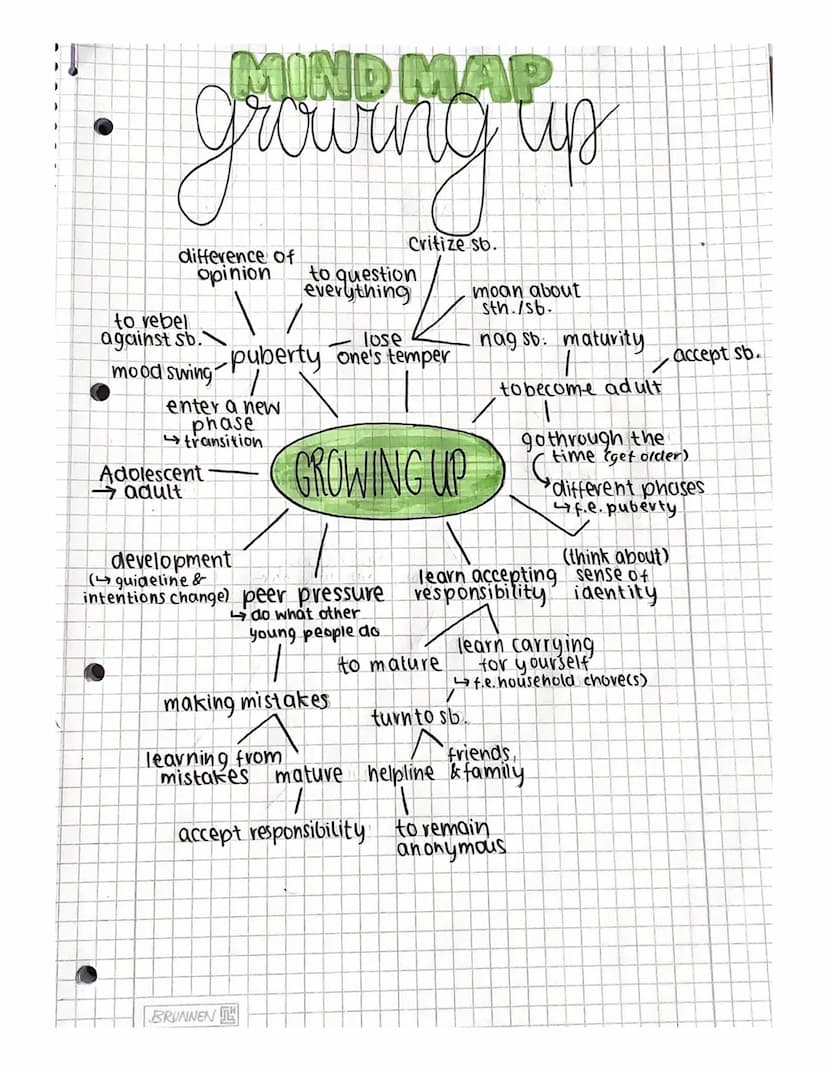 MIND MAP
growing up
critize sb.
difference of
opinion
to question
everything
moan about
sth./sb.
to rebel
against sb.
puberty
lose
one's temper
nag sb.
maturity
accept sb.
mood swing
to become adult
enter a new
phase
↳ transition
go through the
time (get older)
Adolescent
→ adult
GROWING UP
different phases
↳ f.e. puberty
development
(↳ guideline &
intentions change)
peer pressure
↳ do what other
young people do
learn accepting
responsibility
(think about)
sense of
identity
to mature
learn carrying
for yourself
↳ f.e. household chore(s)
making mistakes
turn to sb.
learning from
mistakes
mature
helpline
friends,
& family
accept responsibility
to remain
anonymous
BRUNNEN